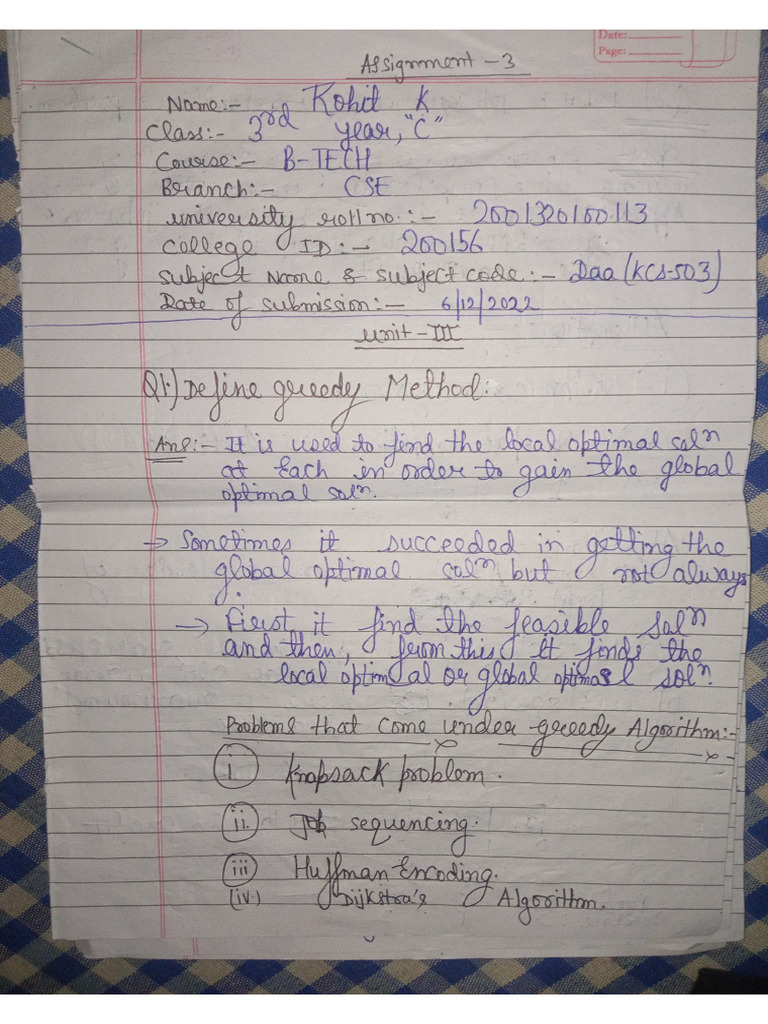 Date:
Page:
Assignment - 3
Name:- Rohit K
Class:- 3rd year, "C"
Course:- B-TECH
Branch:- CSE
university roll no.:- 2001320100113
college ID:- 200156
Subject Name & subject code:- Daa (KCS-503)
Date of submission:- 6/12/2022
unit-III
Q1.) Define greedy Method:
Ans:- It is used to find the local optimal solⁿ
at Each in order to gain the global
optimal solⁿ.
→ Sometimes it succeeded in getting the
global optimal solⁿ, but not always
.
→ First it find the feasible solⁿ
and then, from this it finds the
local optimal or global optimal solⁿ.
Problems that come under greedy Algorithm:-
(i) Knapsack problem.
(ii.) Job sequencing.
(iii) Huffman Encoding.
(iv.) Dijkstra's Algorithm.